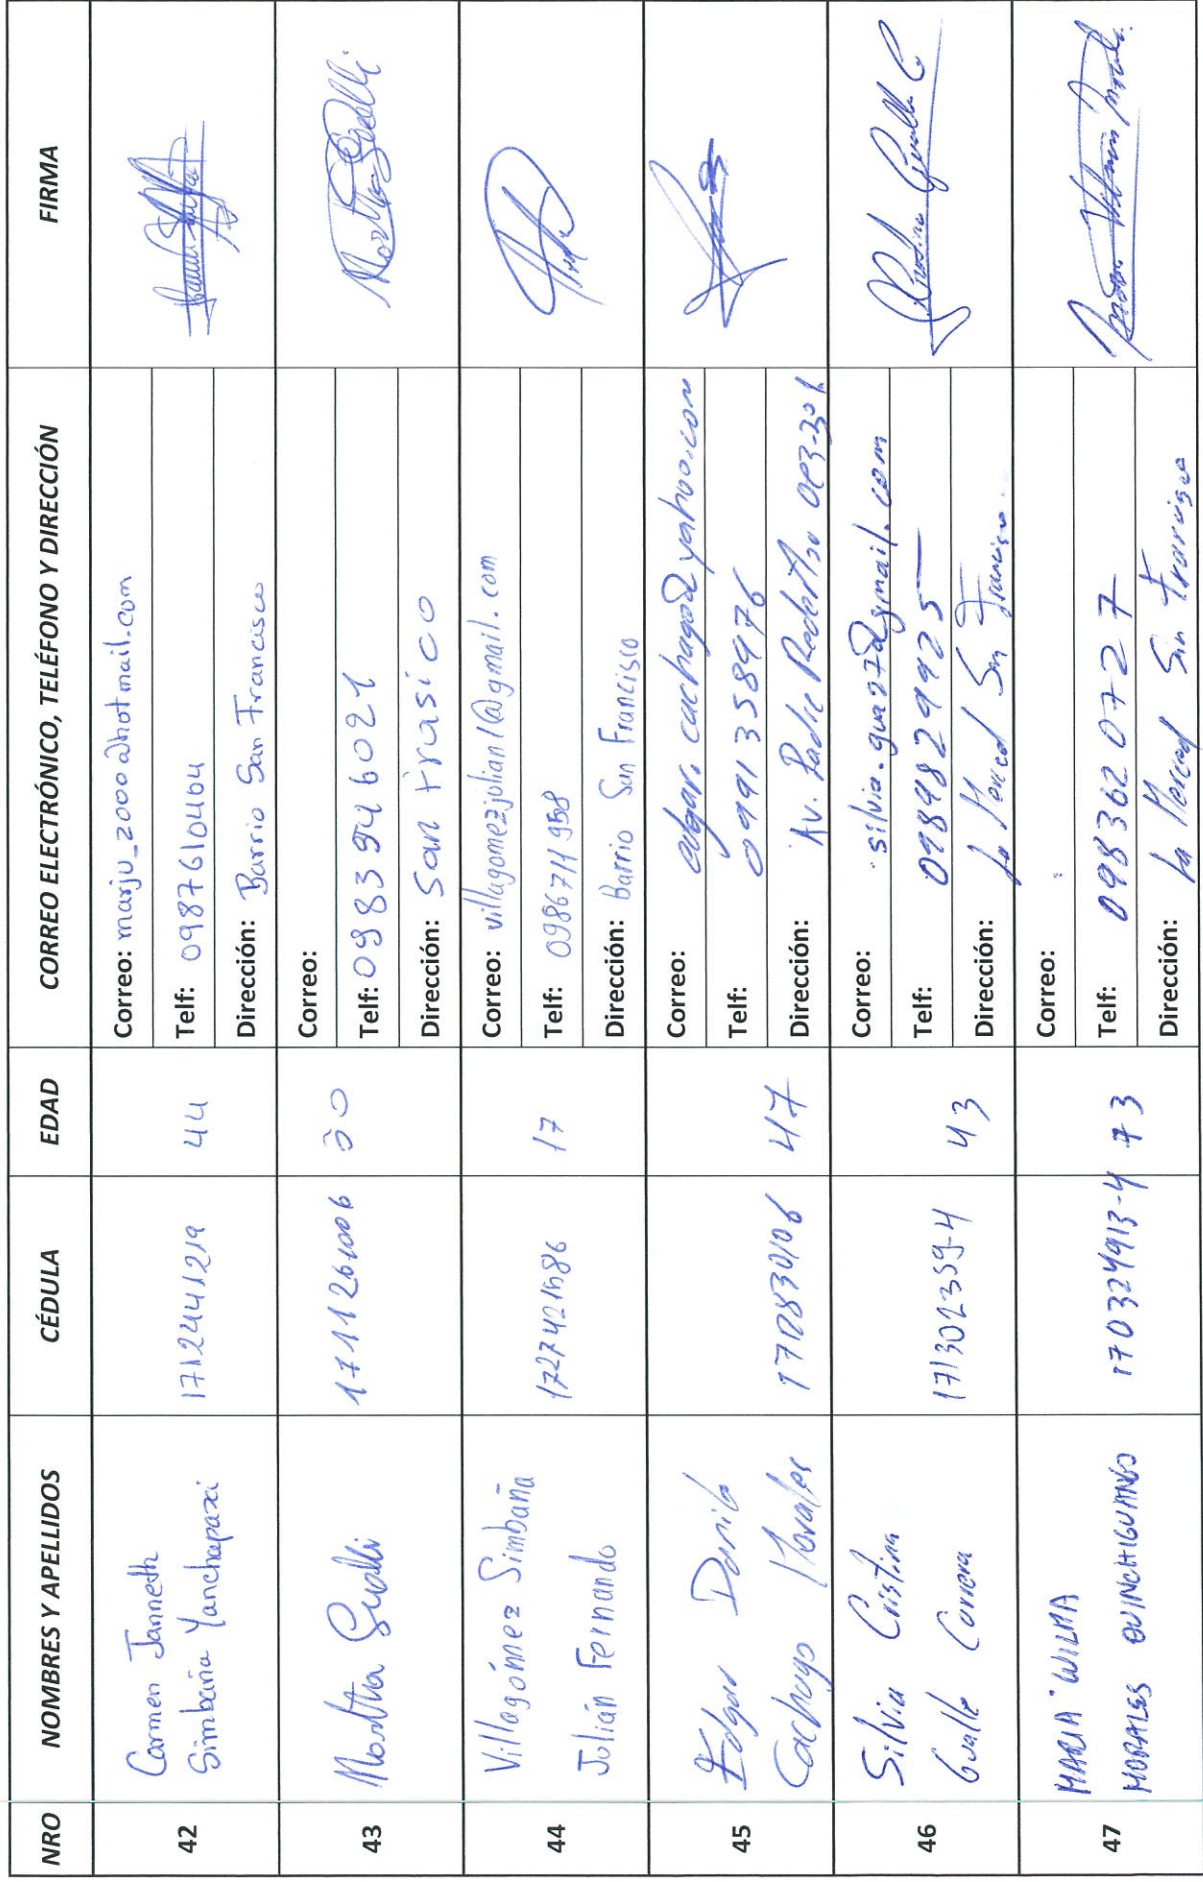 NRO NOMBRES Y APELLIDOS CÉDULA EDAD CORREO ELECTRÓNICO, TELÉFONO Y DIRECCIÓN FIRMA
42
Carmen Janneth
Simbaña Yanchapaxi
1712441219
44
Correo: marju_2000@hotmail.com
Telf: 0987610464
Dirección: Barrio San Francisco
43
Martha Gualli
1711261006
50
Correo:
Telf: 0983946021
Dirección: San Frasico
Martha Gualli
44
Villagómez Simbaña
Julián Fernando
17
Correo: villagomezjulian1@gmail.com
Telf: 0986711958
Dirección: Barrio San Francisco
45
Edgar Danilo
Cachago Morales
47
Correo: edgar.cachago@yahoo.com
Telf: 0991358976
Dirección: Av. Padre
46
Silvia Cristina
Gualle Correra
171302359-4
43
Correo: silvia.gua27@gmail.com
Telf: 0989829925
Dirección: La Merced San Francisco.
47
MARIA WILMA
MORALES QUINCHIGUANGO
170324913-4
73
Correo:
Telf: 0983620727
Dirección: La Merced San Francisco